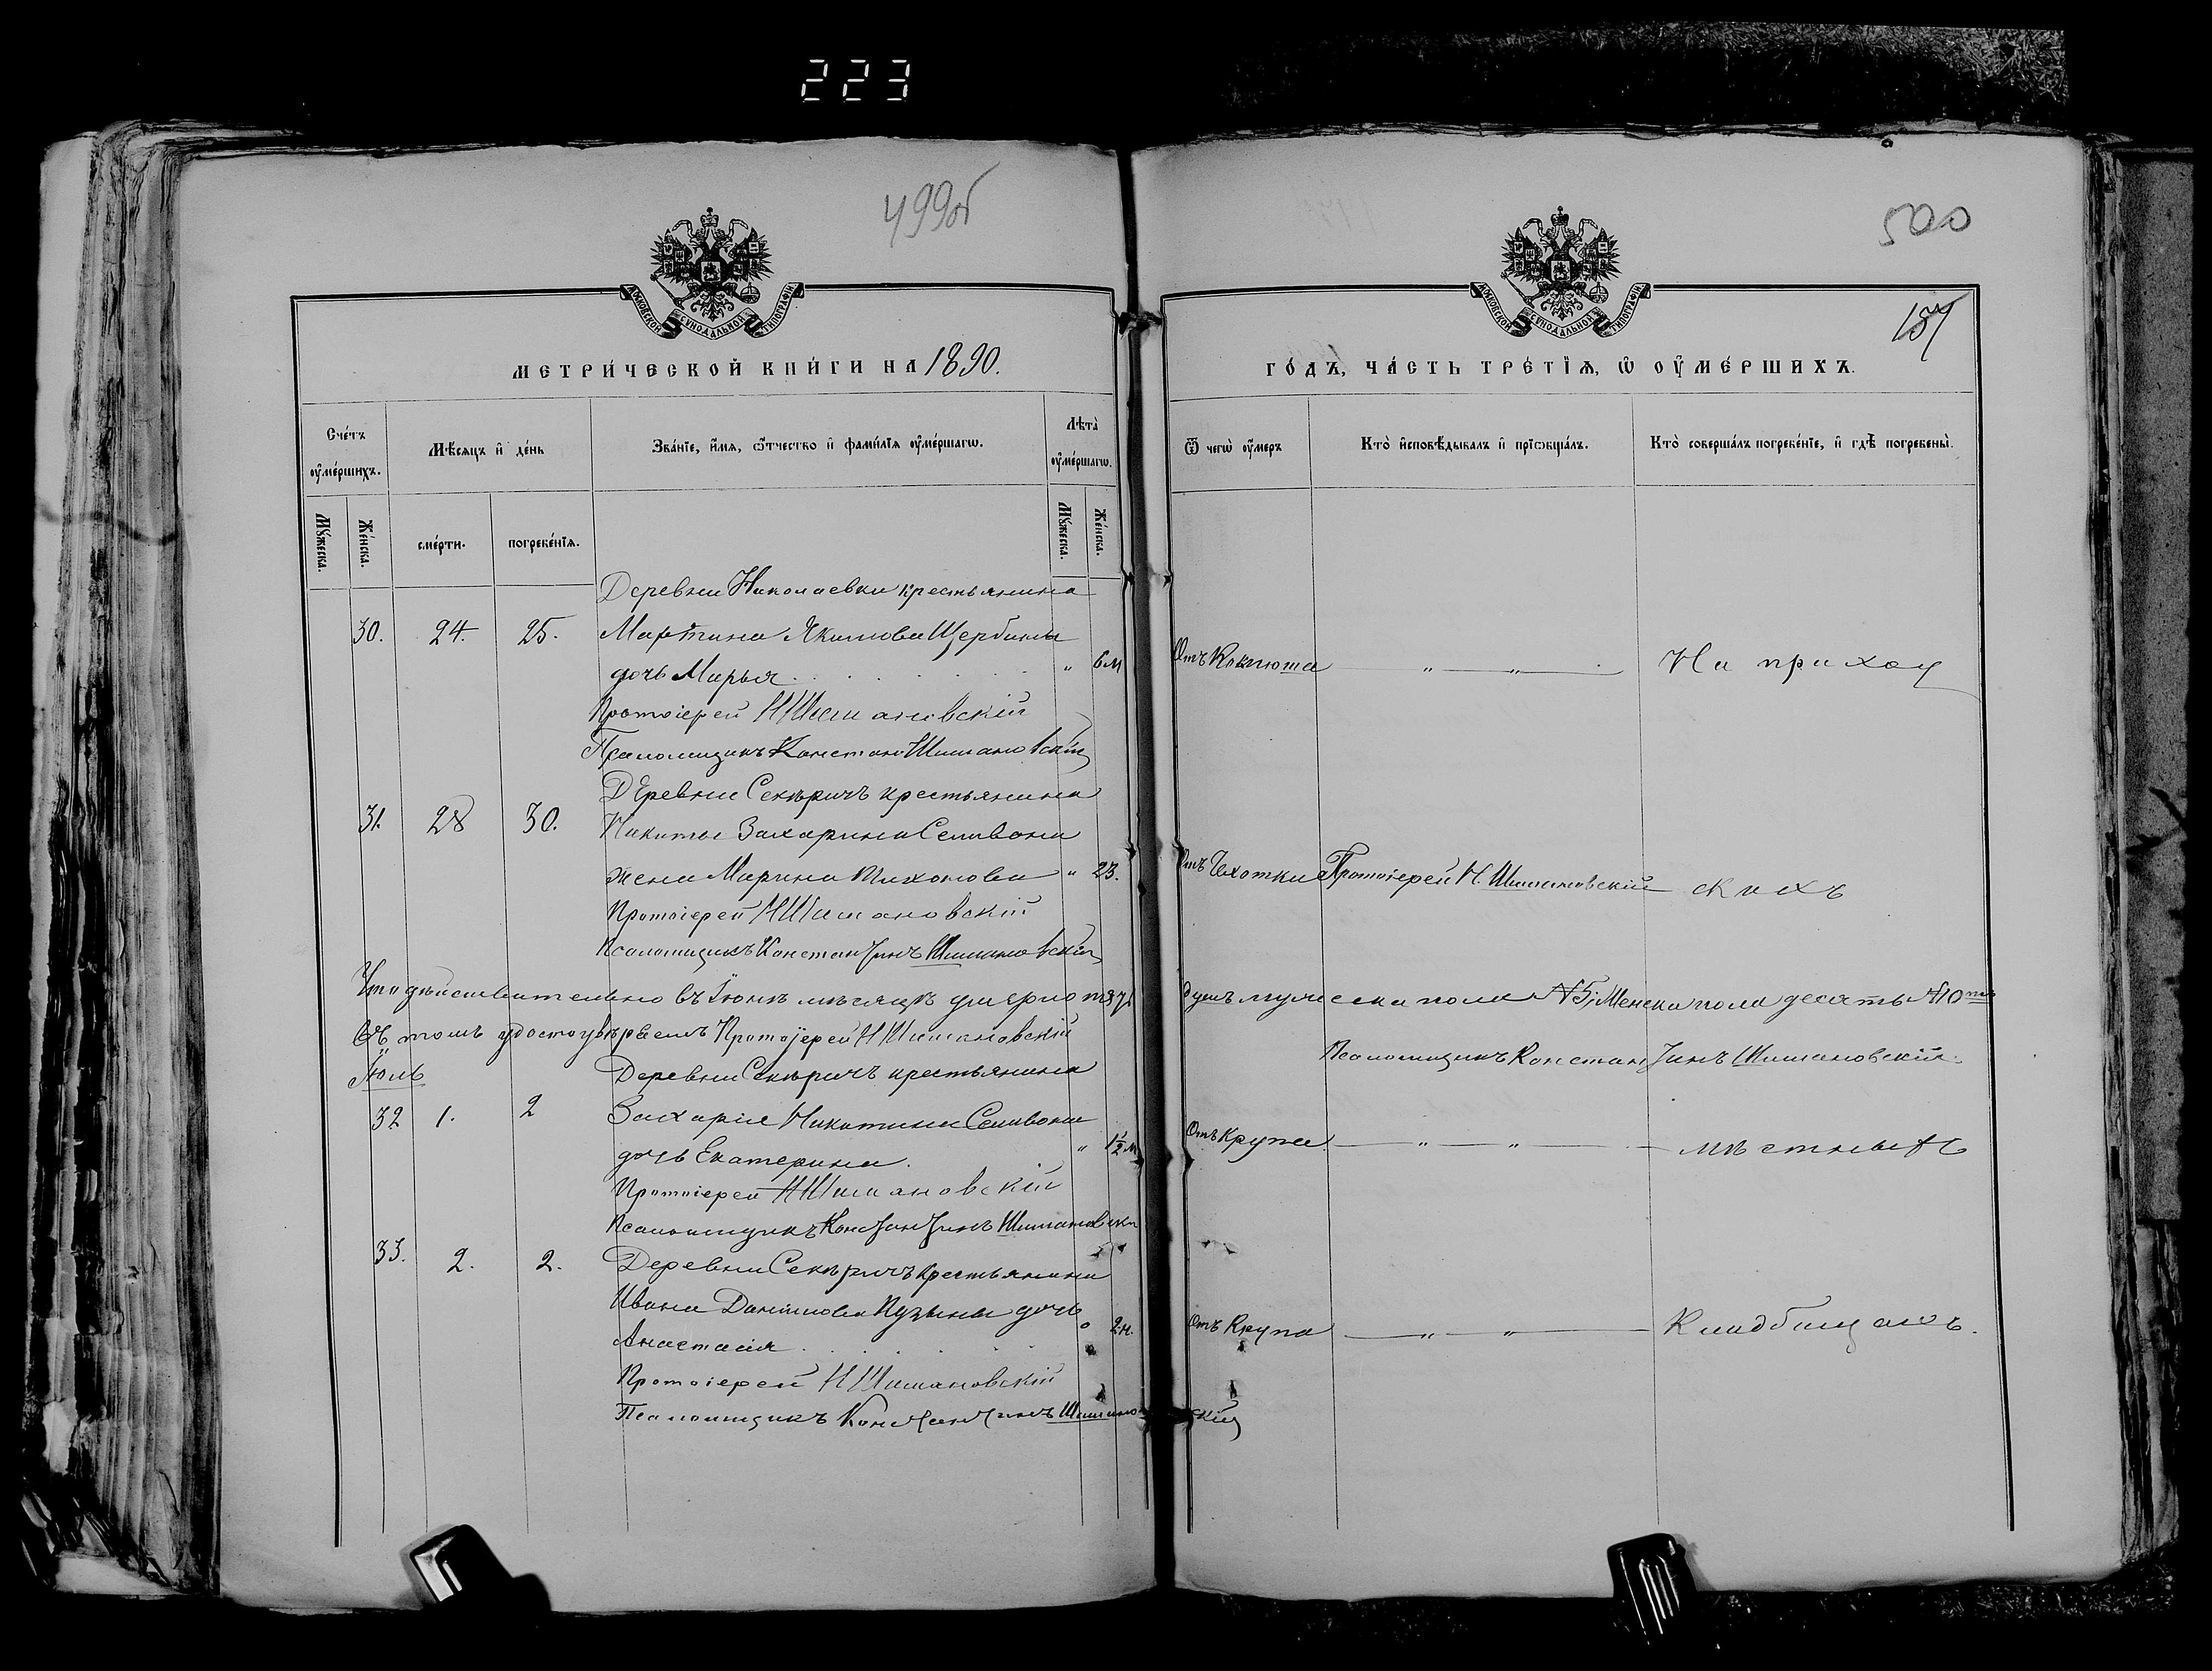 223
499об
МОСКОВСКОЙ СѴНОДАЛЬНОЙ ТИПОГРАФІИ
МЕТРИ́ЧЕСКОЙ КНИ́ГИ НА 1890.
Сче́тъ ᲂу҆ме́ршихъ.
Мѣ́сяцъ и҆ де́нь
Зва́нїе, и҆́мя, ѻ҆́тчество и҆ фами́лїя ᲂу҆ме́ршагѡ.
Лѣта̀ ᲂу҆ме́ршагѡ.
Мꙋ́жеска.
Же́нска.
сме́рти.
погребе́нїѧ.
Мꙋ́жеска.
Же́нска.
Деревни Николаевки крестьянина
30. 24. 25. Мартина Якимова Щербины
дочь Марья . . . . . . " 6 м
Протоіерей Н Шишановскій
Псаломщикъ Констан Шишановскій
Деревни Секѣричъ крестьянина
31. 28 30. Никиты Захарина Селивона
жена Марина Тихонова " 23.
Протоіерей Н Шишановскій
Псаломщикъ Константинъ Шишановскій
Что дѣйствительно въ Іюнѣ мѣсяцѣ умерло
Въ томъ удостовѣряемъ Протоіерей Н Шишановскій
Іюль
Деревни Секѣричъ крестьянина
32 1. 2 Захарія Никитина Селивона
дочь Екатерина. " 1½ м
Протоіерей Н Шишановскій
Псаломщикъ Константинъ Шишановскій
33. 2. 2. Деревни Секѣричъ крестьянина
Ивана Даниілова Кузьмы дочь
Анастасія . . . . . " 2 н.
Протоіерей Н Шишановскій
Псаломщикъ Константинъ Шишановскій
500
187
МОСКОВСКОЙ СѴНОДАЛЬНОЙ ТИПОГРАФІИ
ГО́ДЪ, ЧА́СТЬ ТРЕ́ТЇѦ, Ѡ҆ ОУ҆МЕ́РШИХЪ.
Ѿ чегѡ̀ ᲂу҆́меръ
Кто̀ и҆сповѣ́дывалъ и҆ прїѻбща́лъ.
Кто̀ соверша́лъ погребе́нїе, и҆ гдѣ̀ погребены̀.
Отъ Коклюша " " На приход
Отъ Чахотки Протоіерей Н. Шишановскій скихъ
душъ мужеска пола №5; Женска пола десять №10
Псаломщикъ Константинъ Шишановскій.
Отъ Крупа " " мѣстныхъ
Отъ Крупа " " Кладбищахъ.